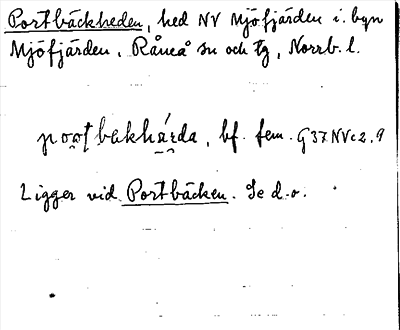 Portbäckheden, hed NV Mjöfjärden i. byn
Mjöfjärden. Råneå sn och tg, Norrb. l.
poo̯ṭbakhárda, bf. fem. G37NVc2.9
Ligger vid Portbäcken. Se d.o.